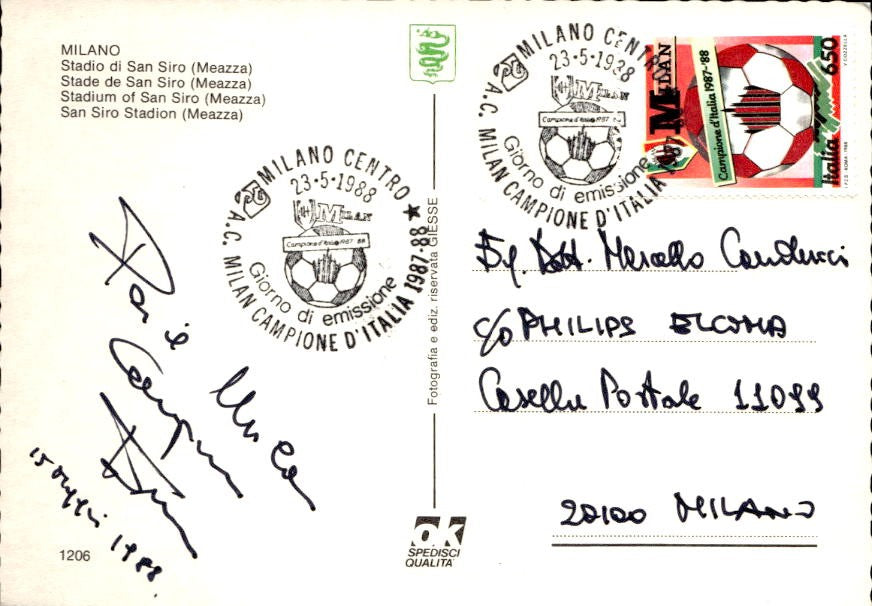 MILANO
Stadio di San Siro (Meazza)
Stade de San Siro (Meazza)
Stadium of San Siro (Meazza)
San Siro Stadion (Meazza)
MILANO CENTRO
23-5-1988
MILAN
Campione d'Italia 1987-88
Giorno di emissione
A.C. MILAN CAMPIONE D'ITALIA 1987-88
MILANO CENTRO
23-5-1988
MILAN
Campione d'Italia 1987-88
Giorno di emissione
A.C. MILAN CAMPIONE D'ITALIA 1987-88
MILAN
Campione d'Italia 1987-'88
Italia
650
I.P.Z.S. ROMA 1988
Fotografia e ediz. riservata GIESSE
Per il
Milan
15 maggio 1988
Eg. Dott. Marcello
c/o PHILIPS ELCOMA
Casella Postale 11099
20100 MILANO
ok
SPEDISCI
QUALITA'
1206